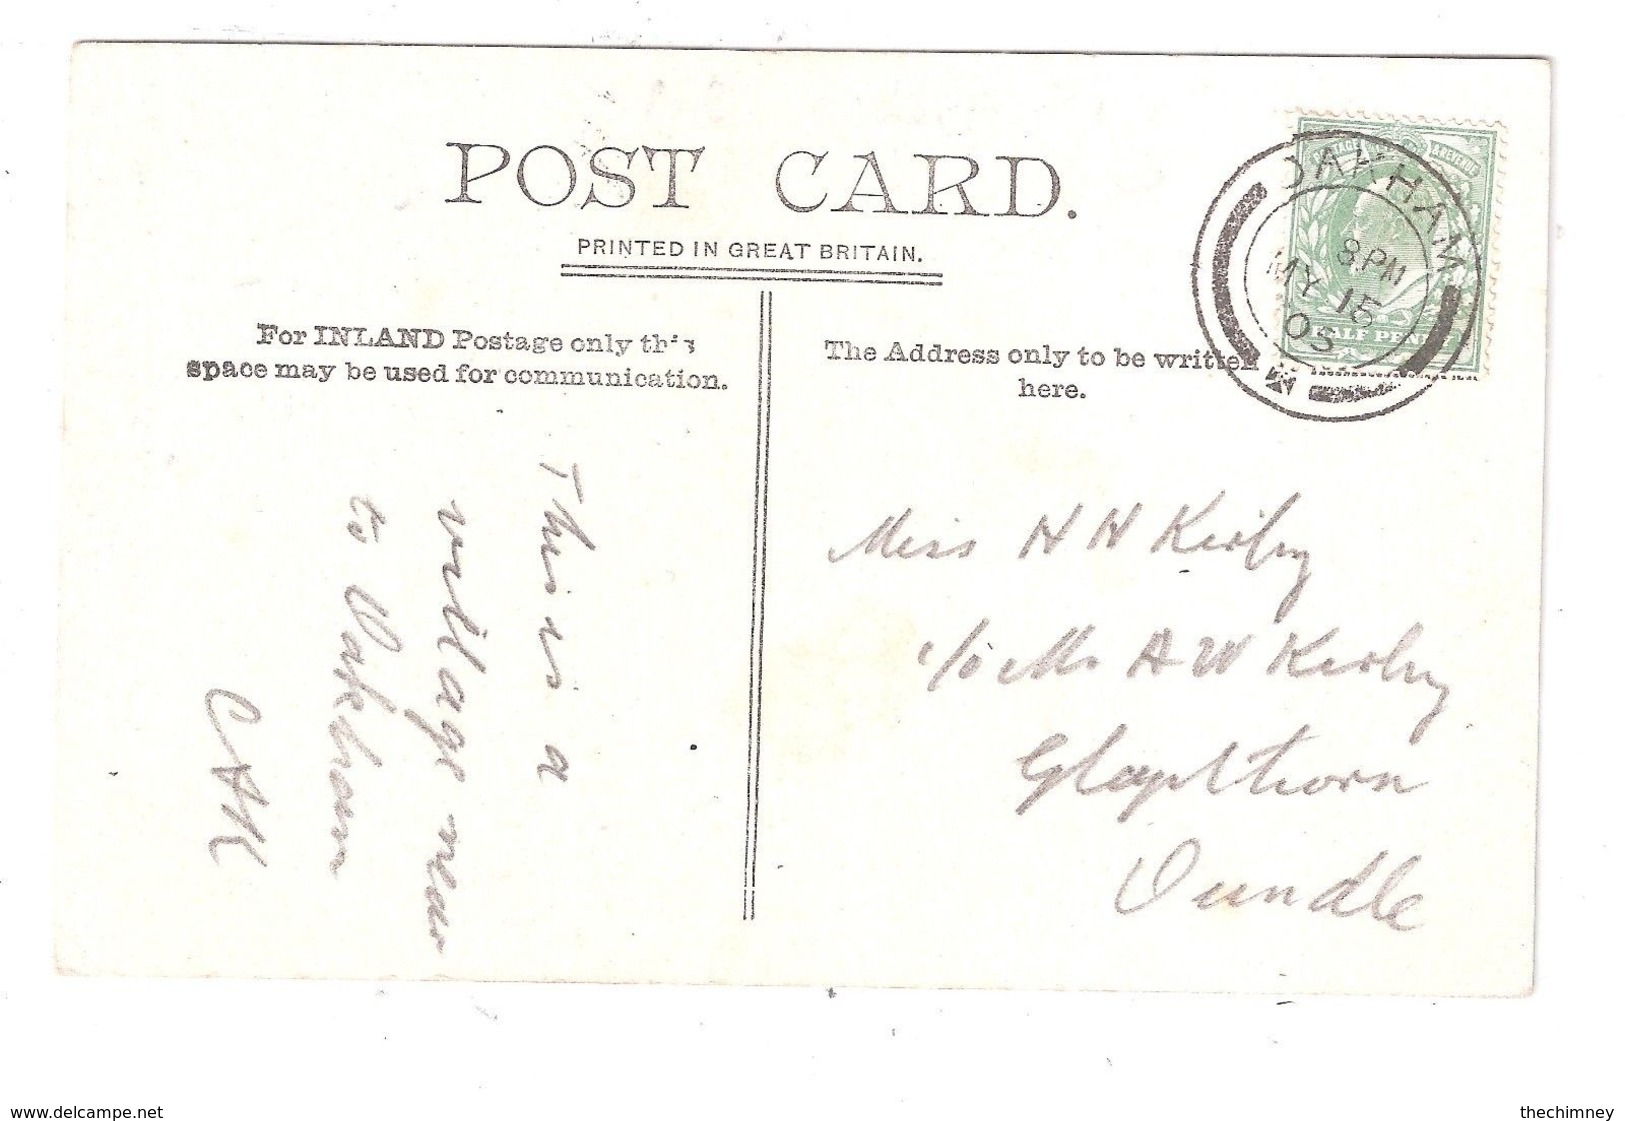 POST CARD.
PRINTED IN GREAT BRITAIN.
For INLAND Postage only this
space may be used for communication.
The Address only to be written
here.
OAKHAM
8 PM
MY 15
05
HALF PENNY
This is a
village near
to Oakham
CAK
Miss H H Kirby
c/o Mr A W Kirby
Glapthorn
Oundle
www.delcampe.net
thechimney